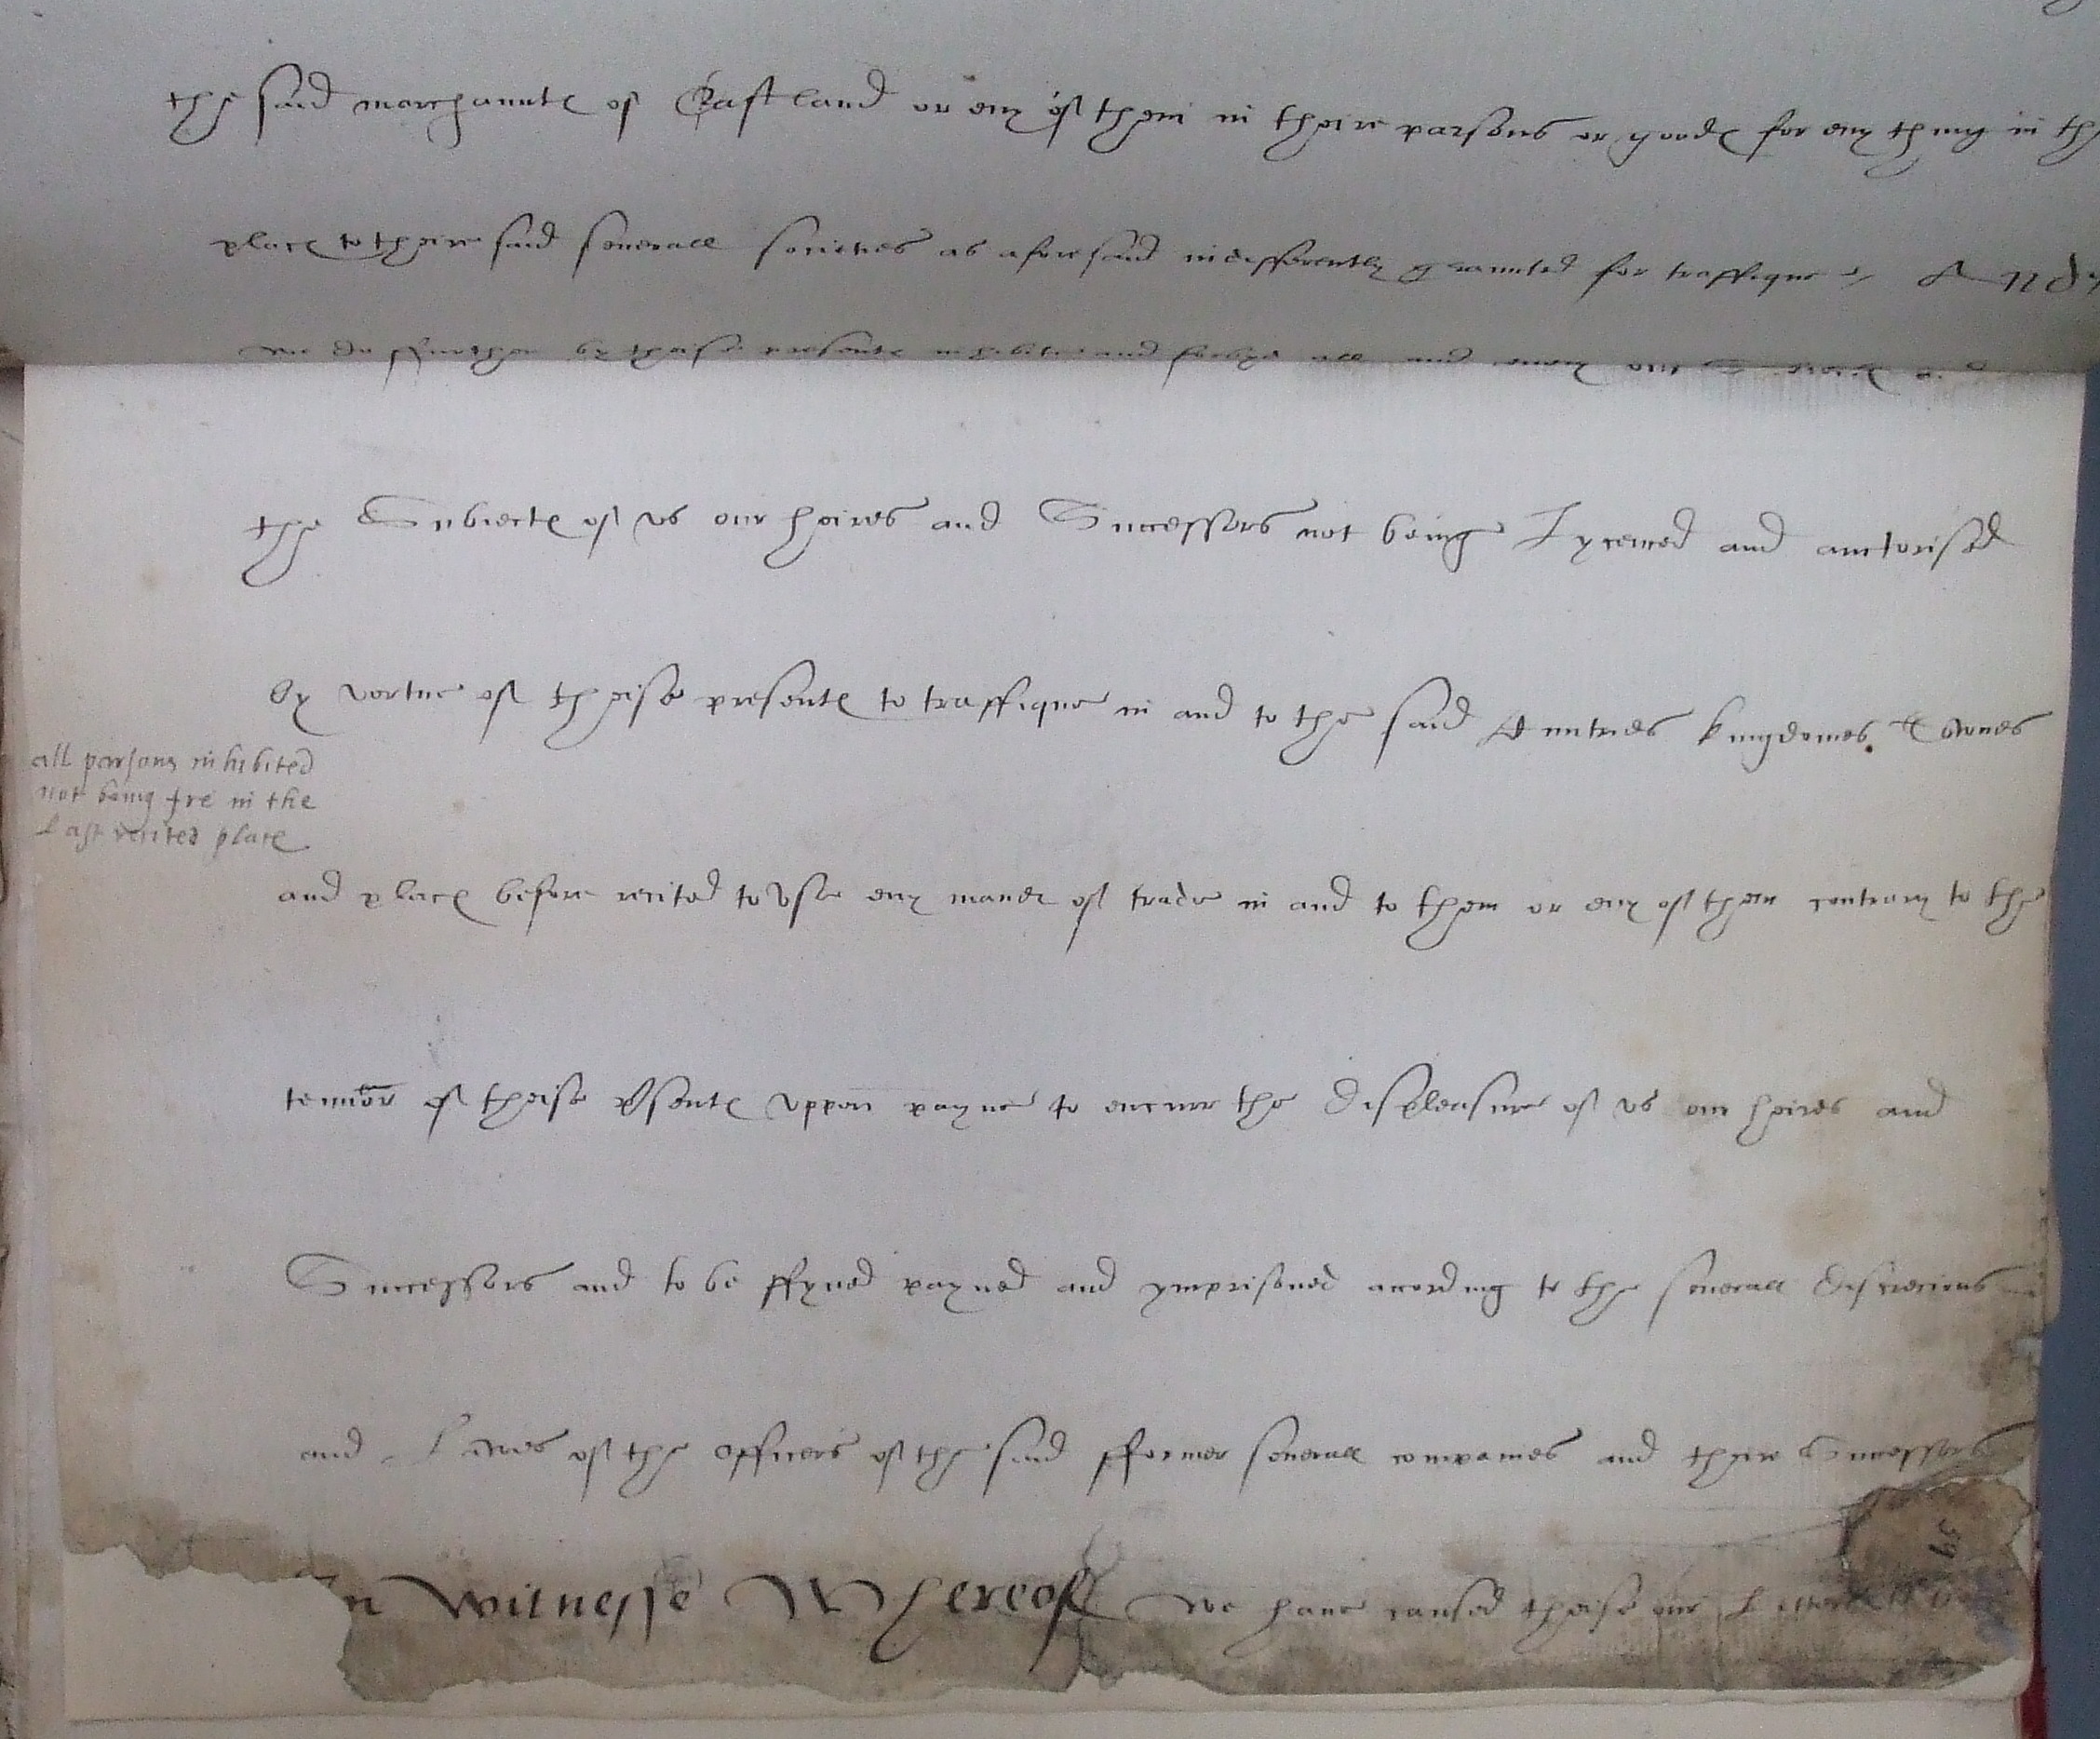 the said marchauntes of Eastland or eny of them in theire parsons or goodes for eny thing in the
places to theire said severall societies as aforesaid indifferently graunted for traffique And
we do ffurther by theise presentes inhibite and forbyd all and every
the Subiectes of vs our heires and Successors not being Lycenced and auctorised
by vertue of theise presentes to traffique in and to the said Cuntries kingdomes Townes
all parsons inhibited
not being fre in the
last recited places
and places before recited to vse eny maner of trade in and to them or eny of them contrary to the
tennor of theise presentes vppon payne to encurr the displeasure of vs our heires and
Successors and to be ffyned payned and ymprisoned acording to the severall discrecions
and Lawes of the officers of the said fformer severall companies and theire Successors
In Witnesse Whereof we have caused theise our Letters
59